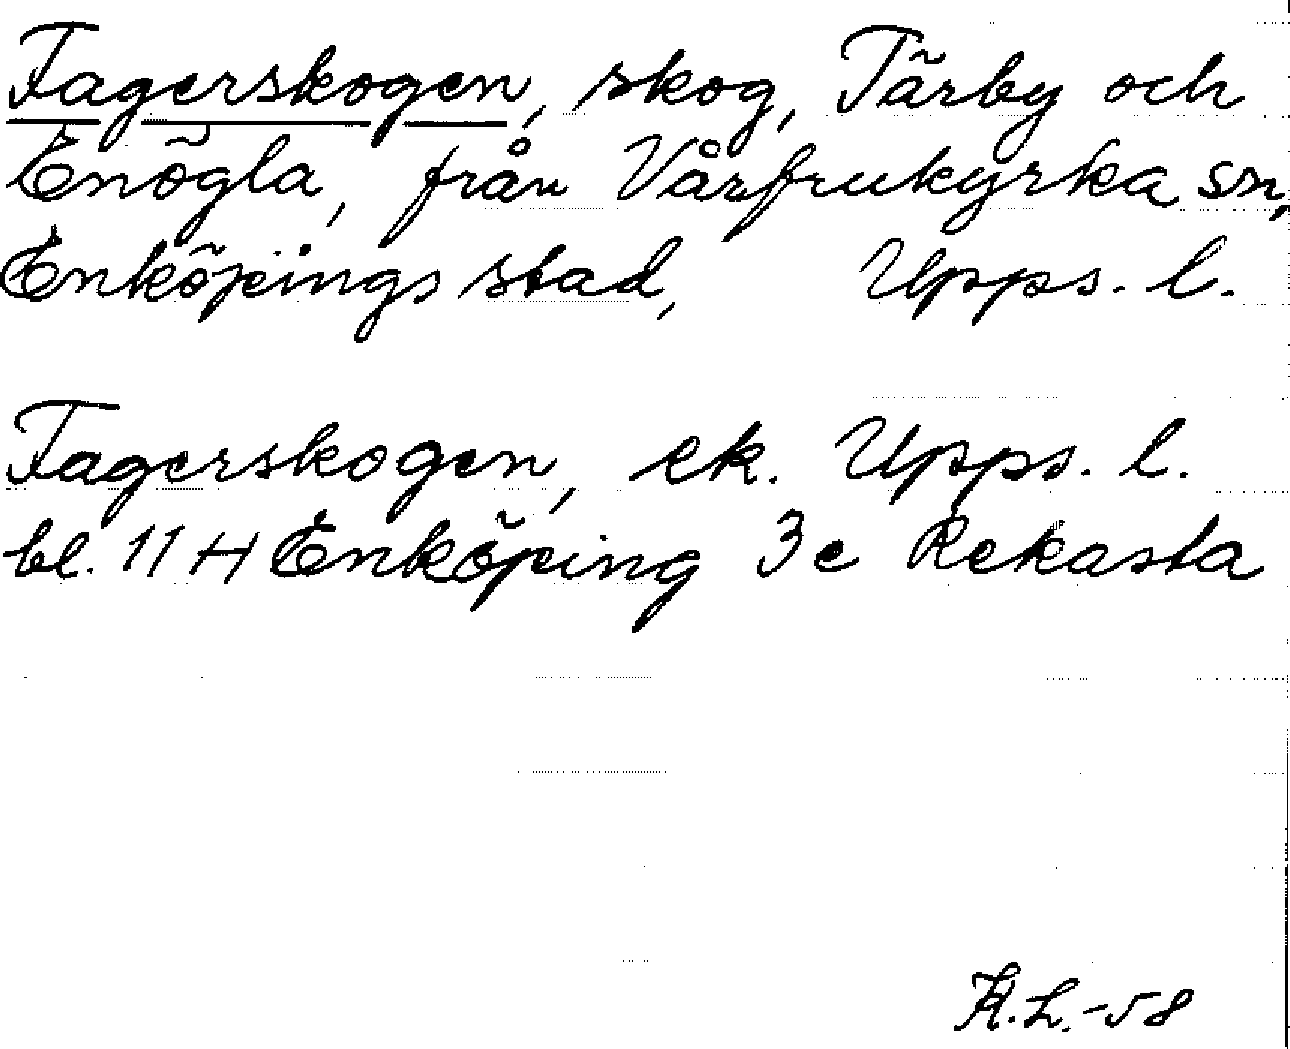 Fagerskogen, skog, Tärby och
Enögla, från Vårfrukyrka sn,
Enköpings stad, Upps. l.
Fagerskogen, ek. Upps. l.
bl. 11 H Enköping 3e Rekasta
H.L.-58